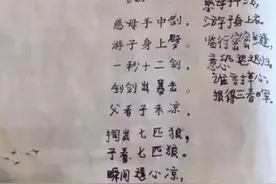 慈母手中剑,
游子身上劈。
一秒十二剑
剑剑出暴击。
父看子未凉,
掏出七匹狼,
子看七匹狼。
瞬间透心凉,
游子身上衣。
临行密密缝,
意恐迟迟归。
谁言寸草心
报得三春晖